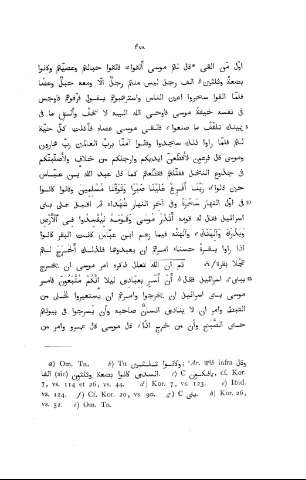 ٤٧٨
اوّل من القى ª قال لهم موسى أَلْقُوا فالقوا حبالهم وعصيّهم وكانوا
بضعة وثلثين الف رجل ليس منهم رجل الّا ومعه حبل وعصا
فلمّا القوا سحروا اعين الناس واسترهبوهم يقول فرقوهم فاوجس
فى نفسه خيفة موسى فاوحى الله اليه لا تَخَفْ وأَلْقِ ما فى
5 يمينك تلقف ما صنعوا فالقى موسى عصاه فأكلت كلّ حيّة
لهم فلمّا راوا ذلك سجدوا وقالوا آمنّا بربّ العالمين ربّ هارون
وموسى قال فرعون لأقطّعنّ ايديكم وارجلكم من خلاف ولأصلّبنّكم
فى جذوع النخل فقتّلهم وقطّعهم كما قال عبد الله بن عبّاس
حين قالوا رَبَّنا أَفْرِغْ عَلَيْنا صَبْرًا وَتَوَفَّنا مُسْلِمينَ وقالوا كانوا
10 فى اوّل النهار سَحَرَة وفى آخر النهار شُهَداء ثم اقبل على بنى
اسرائيل فقال له قومه أَتَذَرُ مُوسَى وَقَوْمَهُ لِيُفْسِدُوا فِى ٱلْأَرْضِ
وَيَذَرَكَ وَآلِهَتَكَ وآلهته فيما زعم ابن عبّاس كانت البقر كانوا
اذا راوا بقرة حسناء امرهم ان يعبدوها فلذلك أَخْرَجَ لَهُمْ
عِجْلًا بقرة، ثم ان الله تعالى ذكره امر موسى ان يخرج
15 ببنى اسرائيل فقال أَنْ أَسْرِ بِعِبادِى لَيْلًا إِنَّكُمْ مُتَّبَعُونَ فامر
موسى بنى اسرائيل ان يخرجوا وامرهم ان يستعيروا الحُلىّ من
القبط وامر ان لا ينادى انسان صاحبه وأن يسرجوا فى بيوتهم
حتى الصُّبْح وأن من خرج اذا قال موسى قال عمرو وامر من
a) Om. Tn. b) Tn وكانوا ثمانين; Ar. ١٣٥ infra وقال
السدى كانوا بضعة وثلثون (sic) الفا. c) C يافكون, cf. Kor.
7, vs. 114 et 26, vs. 44. d) Kor. 7, vs. 123. e) Ibid.
vs. 124. f) Cf. Kor. 20, vs. 90. g) C بنى. h) Kor. 26,
vs. 52. i) Om. Tn.